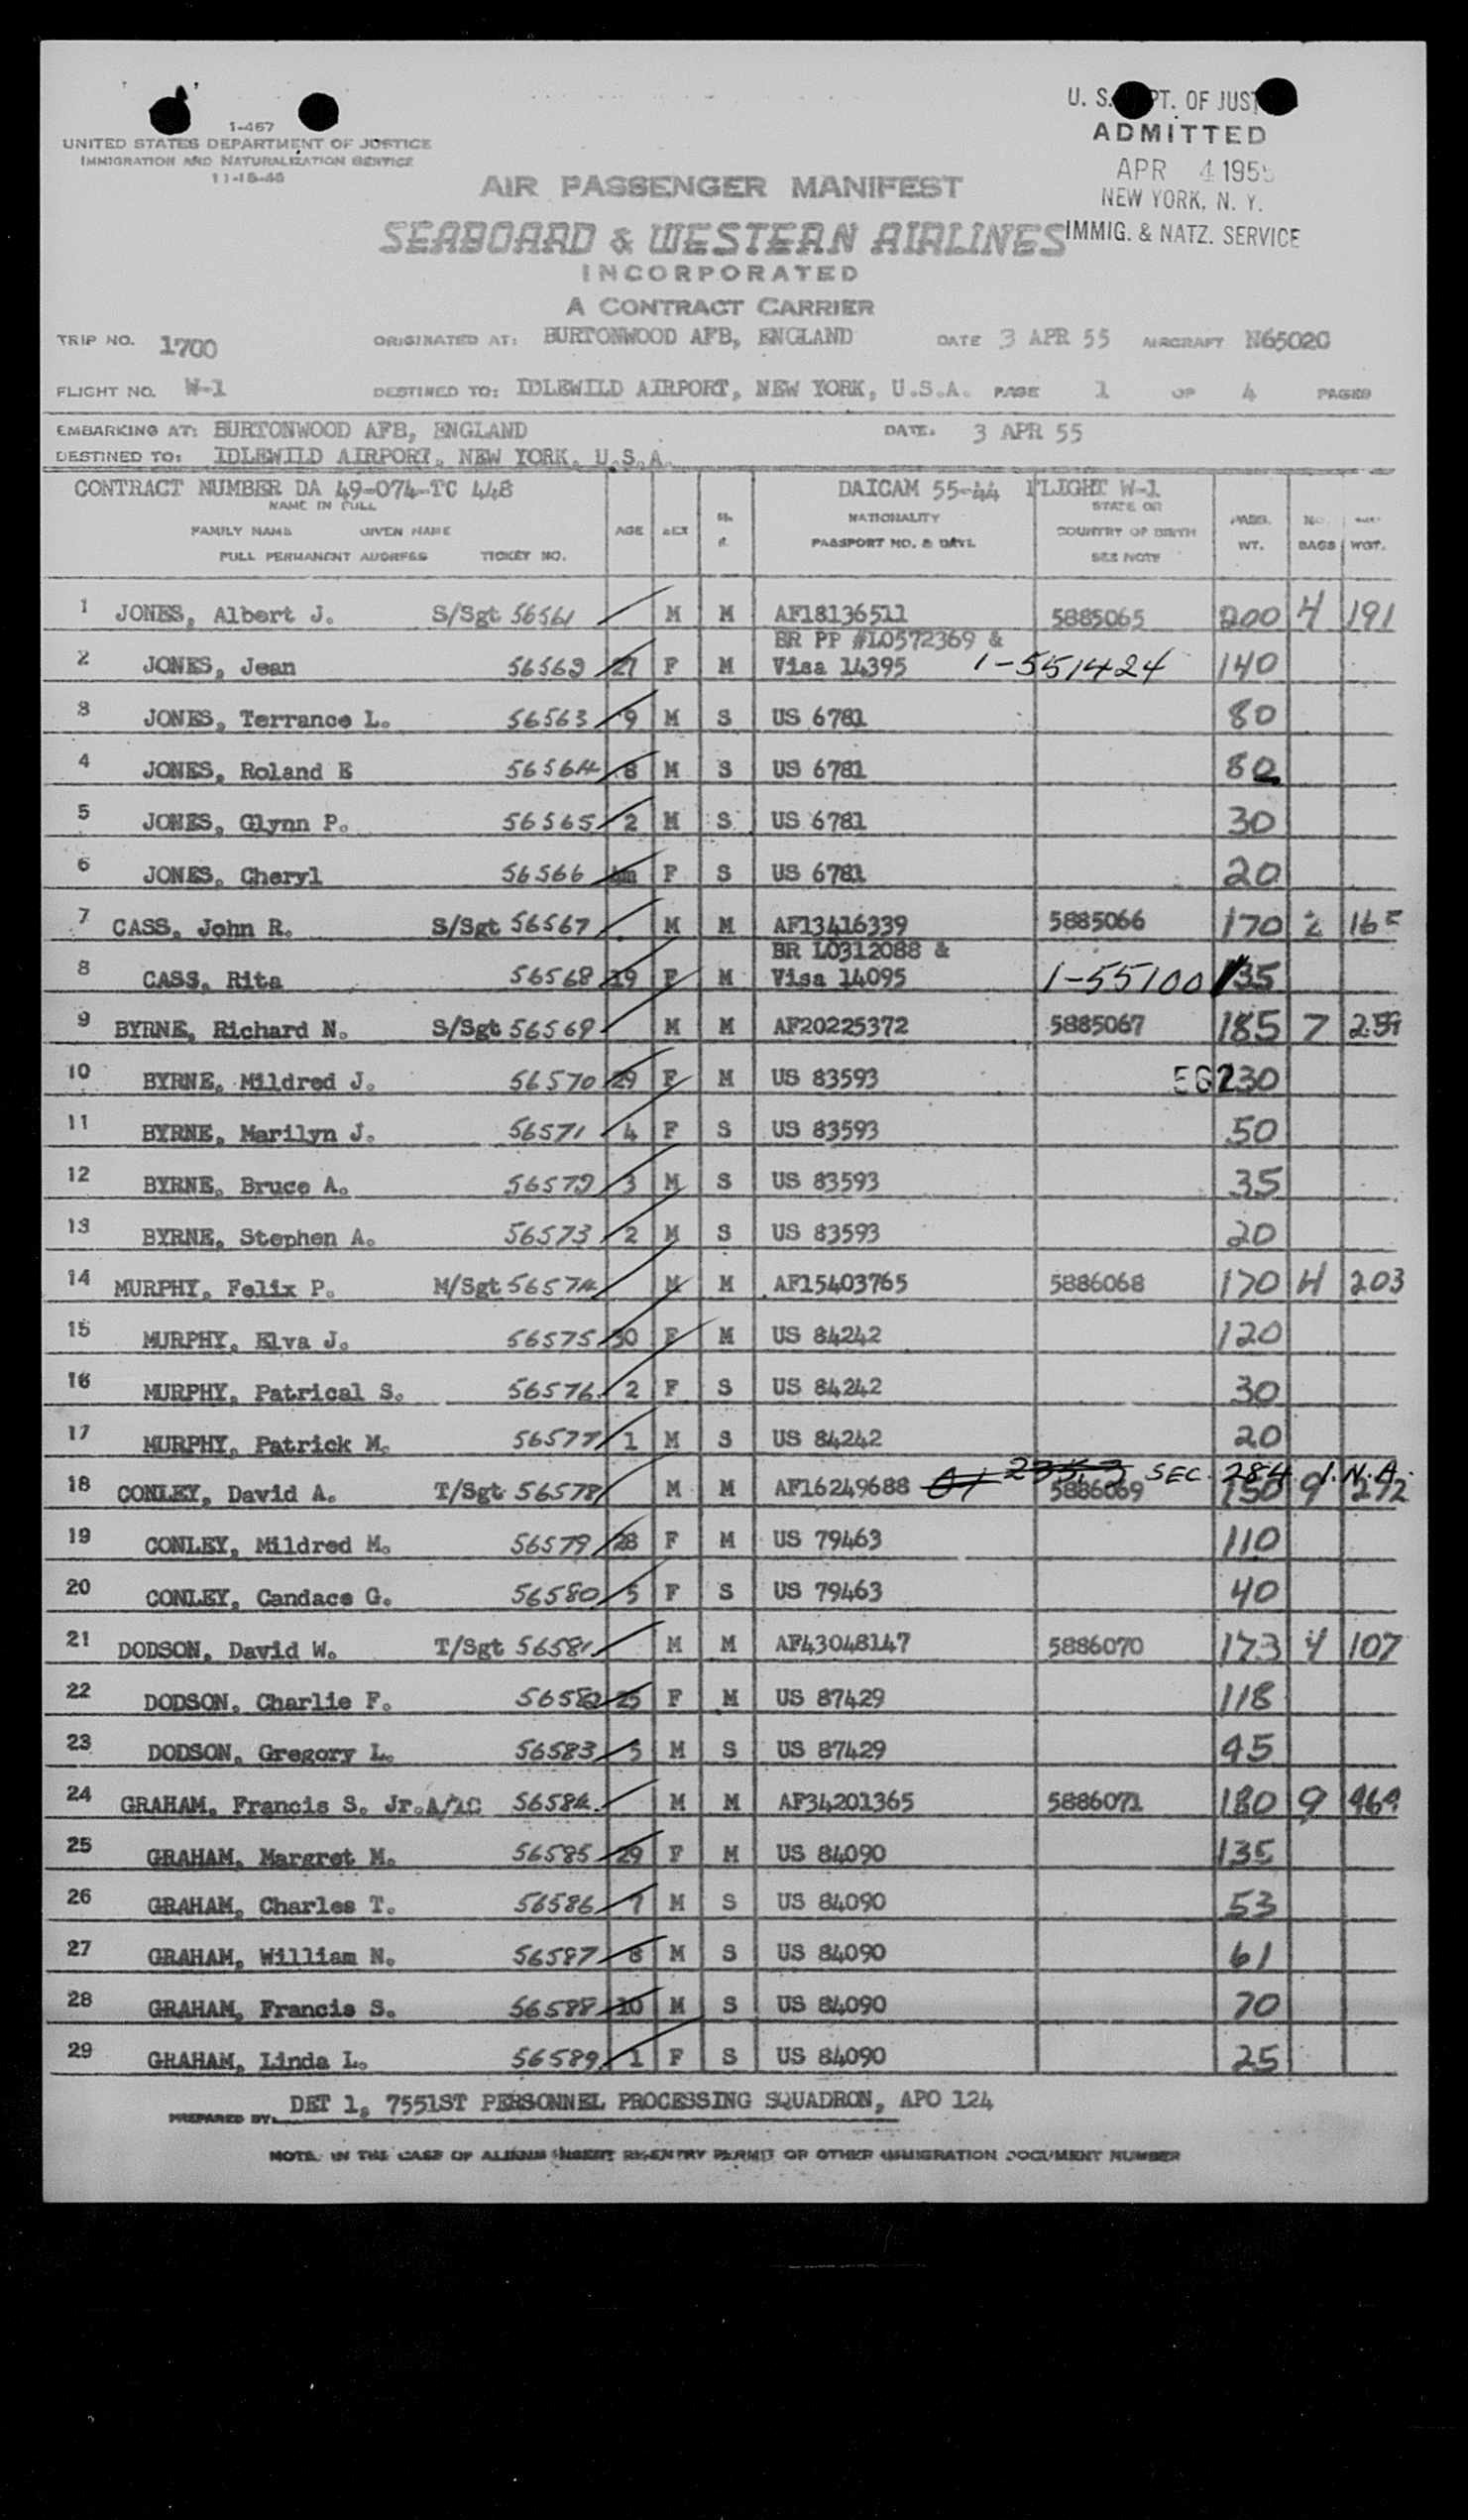 U. S. DEPT. OF JUST
ADMITTED
APR 4 1955
NEW YORK, N. Y.
IMMIG. & NATZ. SERVICE
1-467
UNITED STATES DEPARTMENT OF JUSTICE
IMMIGRATION AND NATURALIZATION SERVICE
11-15-46
AIR PASSENGER MANIFEST
SEABOARD & WESTERN AIRLINES
INCORPORATED
A CONTRACT CARRIER
TRIP NO. 1700 ORIGINATED AT: BURTONWOOD AFB, ENGLAND DATE 3 APR 55 AIRCRAFT N6502C
FLIGHT NO. W-1 DESTINED TO: IDLEWILD AIRPORT, NEW YORK, U.S.A. PAGE 1 OF 4 PAGES
EMBARKING AT: BURTONWOOD AFB, ENGLAND DATE. 3 APR 55
DESTINED TO: IDLEWILD AIRPORT, NEW YORK, U.S.A.
CONTRACT NUMBER DA 49-074-TC 448 DAICAM 55-44 FLIGHT W-1
NAME IN FULL NATIONALITY STATE OR
FAMILY NAME GIVEN NAME AGE SEX PASSPORT NO. & DATE COUNTRY OF BIRTH PASS. NO.
FULL PERMANENT ADDRESS TICKET NO. SEE NOTE WT. BAGS WGT.
1 JONES, Albert J. S/Sgt 56561 M M AF18136511 5885065 200 4 191
2 JONES, Jean 56562 27 F M BR PP #L0572369 & Visa 14395 1-551424 140
3 JONES, Terrance L. 56563 9 M S US 6781 80
4 JONES, Roland E 56564 8 M S US 6781 80
5 JONES, Glynn P. 56565 2 M S US 6781 30
6 JONES, Cheryl 56566 F S US 6781 20
7 CASS, John R. S/Sgt 56567 M M AF13416339 5885066 170 2 165
8 CASS, Rita 56568 19 F M BR L0312088 & Visa 14095 1-55100 135
9 BYRNE, Richard N. S/Sgt 56569 M M AF20225372 5885067 185 7 259
10 BYRNE, Mildred J. 56570 29 F M US 83593 130
11 BYRNE, Marilyn J. 56571 4 F S US 83593 50
12 BYRNE, Bruce A. 56572 3 M S US 83593 35
13 BYRNE, Stephen A. 56573 2 M S US 83593 20
14 MURPHY, Felix P. M/Sgt 56574 M M AF15403765 5886068 170 4 203
15 MURPHY, Elva J. 56575 30 F M US 84242 120
16 MURPHY, Patrical S. 56576 2 F S US 84242 30
17 MURPHY, Patrick M. 56577 1 M S US 84242 20
SEC. 284 I.N.A.
18 CONLEY, David A. T/Sgt 56578 M M AF16249688 5886069 150 9 272
19 CONLEY, Mildred M. 56579 28 F M US 79463 110
20 CONLEY, Candace G. 56580 5 F S US 79463 40
21 DODSON, David W. T/Sgt 56581 M M AF43048147 5886070 173 4 107
22 DODSON, Charlie F. 56582 25 F M US 87429 118
23 DODSON, Gregory L. 56583 5 M S US 87429 45
24 GRAHAM, Francis S. Jr. A/1C 56584 M M AF34201365 5886071 180 9 469
25 GRAHAM, Margret M. 56585 29 F M US 84090 135
26 GRAHAM, Charles T. 56586 7 M S US 84090 53
27 GRAHAM, William N. 56587 8 M S US 84090 61
28 GRAHAM, Francis S. 56588 10 M S US 84090 70
29 GRAHAM, Linda L. 56589 1 F S US 84090 25
PREPARED BY: DET 1, 7551ST PERSONNEL PROCESSING SQUADRON, APO 124
NOTE: IN THE CASE OF ALIENS INSERT RE-ENTRY PERMIT OR OTHER IMMIGRATION DOCUMENT NUMBER